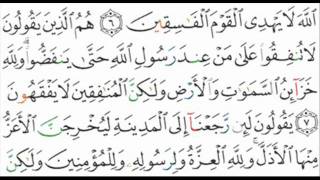 ٱللَّهَ لَا يَهْدِى ٱلْقَوْمَ ٱلْفَـٰسِقِينَ ٦ هُمُ ٱلَّذِينَ يَقُولُونَ
لَا تُنفِقُوا۟ عَلَىٰ مَنْ عِندَ رَسُولِ ٱللَّهِ حَتَّىٰ يَنفَضُّوا۟ ۗ وَلِلَّهِ
خَزَآئِنُ ٱلسَّمَـٰوَٰتِ وَٱلْأَرْضِ وَلَـٰكِنَّ ٱلْمُنَـٰفِقِينَ لَا يَفْقَهُونَ
٧ يَقُولُونَ لَئِن رَّجَعْنَآ إِلَى ٱلْمَدِينَةِ لَيُخْرِجَنَّ ٱلْأَعَزُّ
مِنْهَا ٱلْأَذَلَّ ۚ وَلِلَّهِ ٱلْعِزَّةُ وَلِرَسُولِهِۦ وَلِلْمُؤْمِنِينَ وَلَـٰكِنَّ